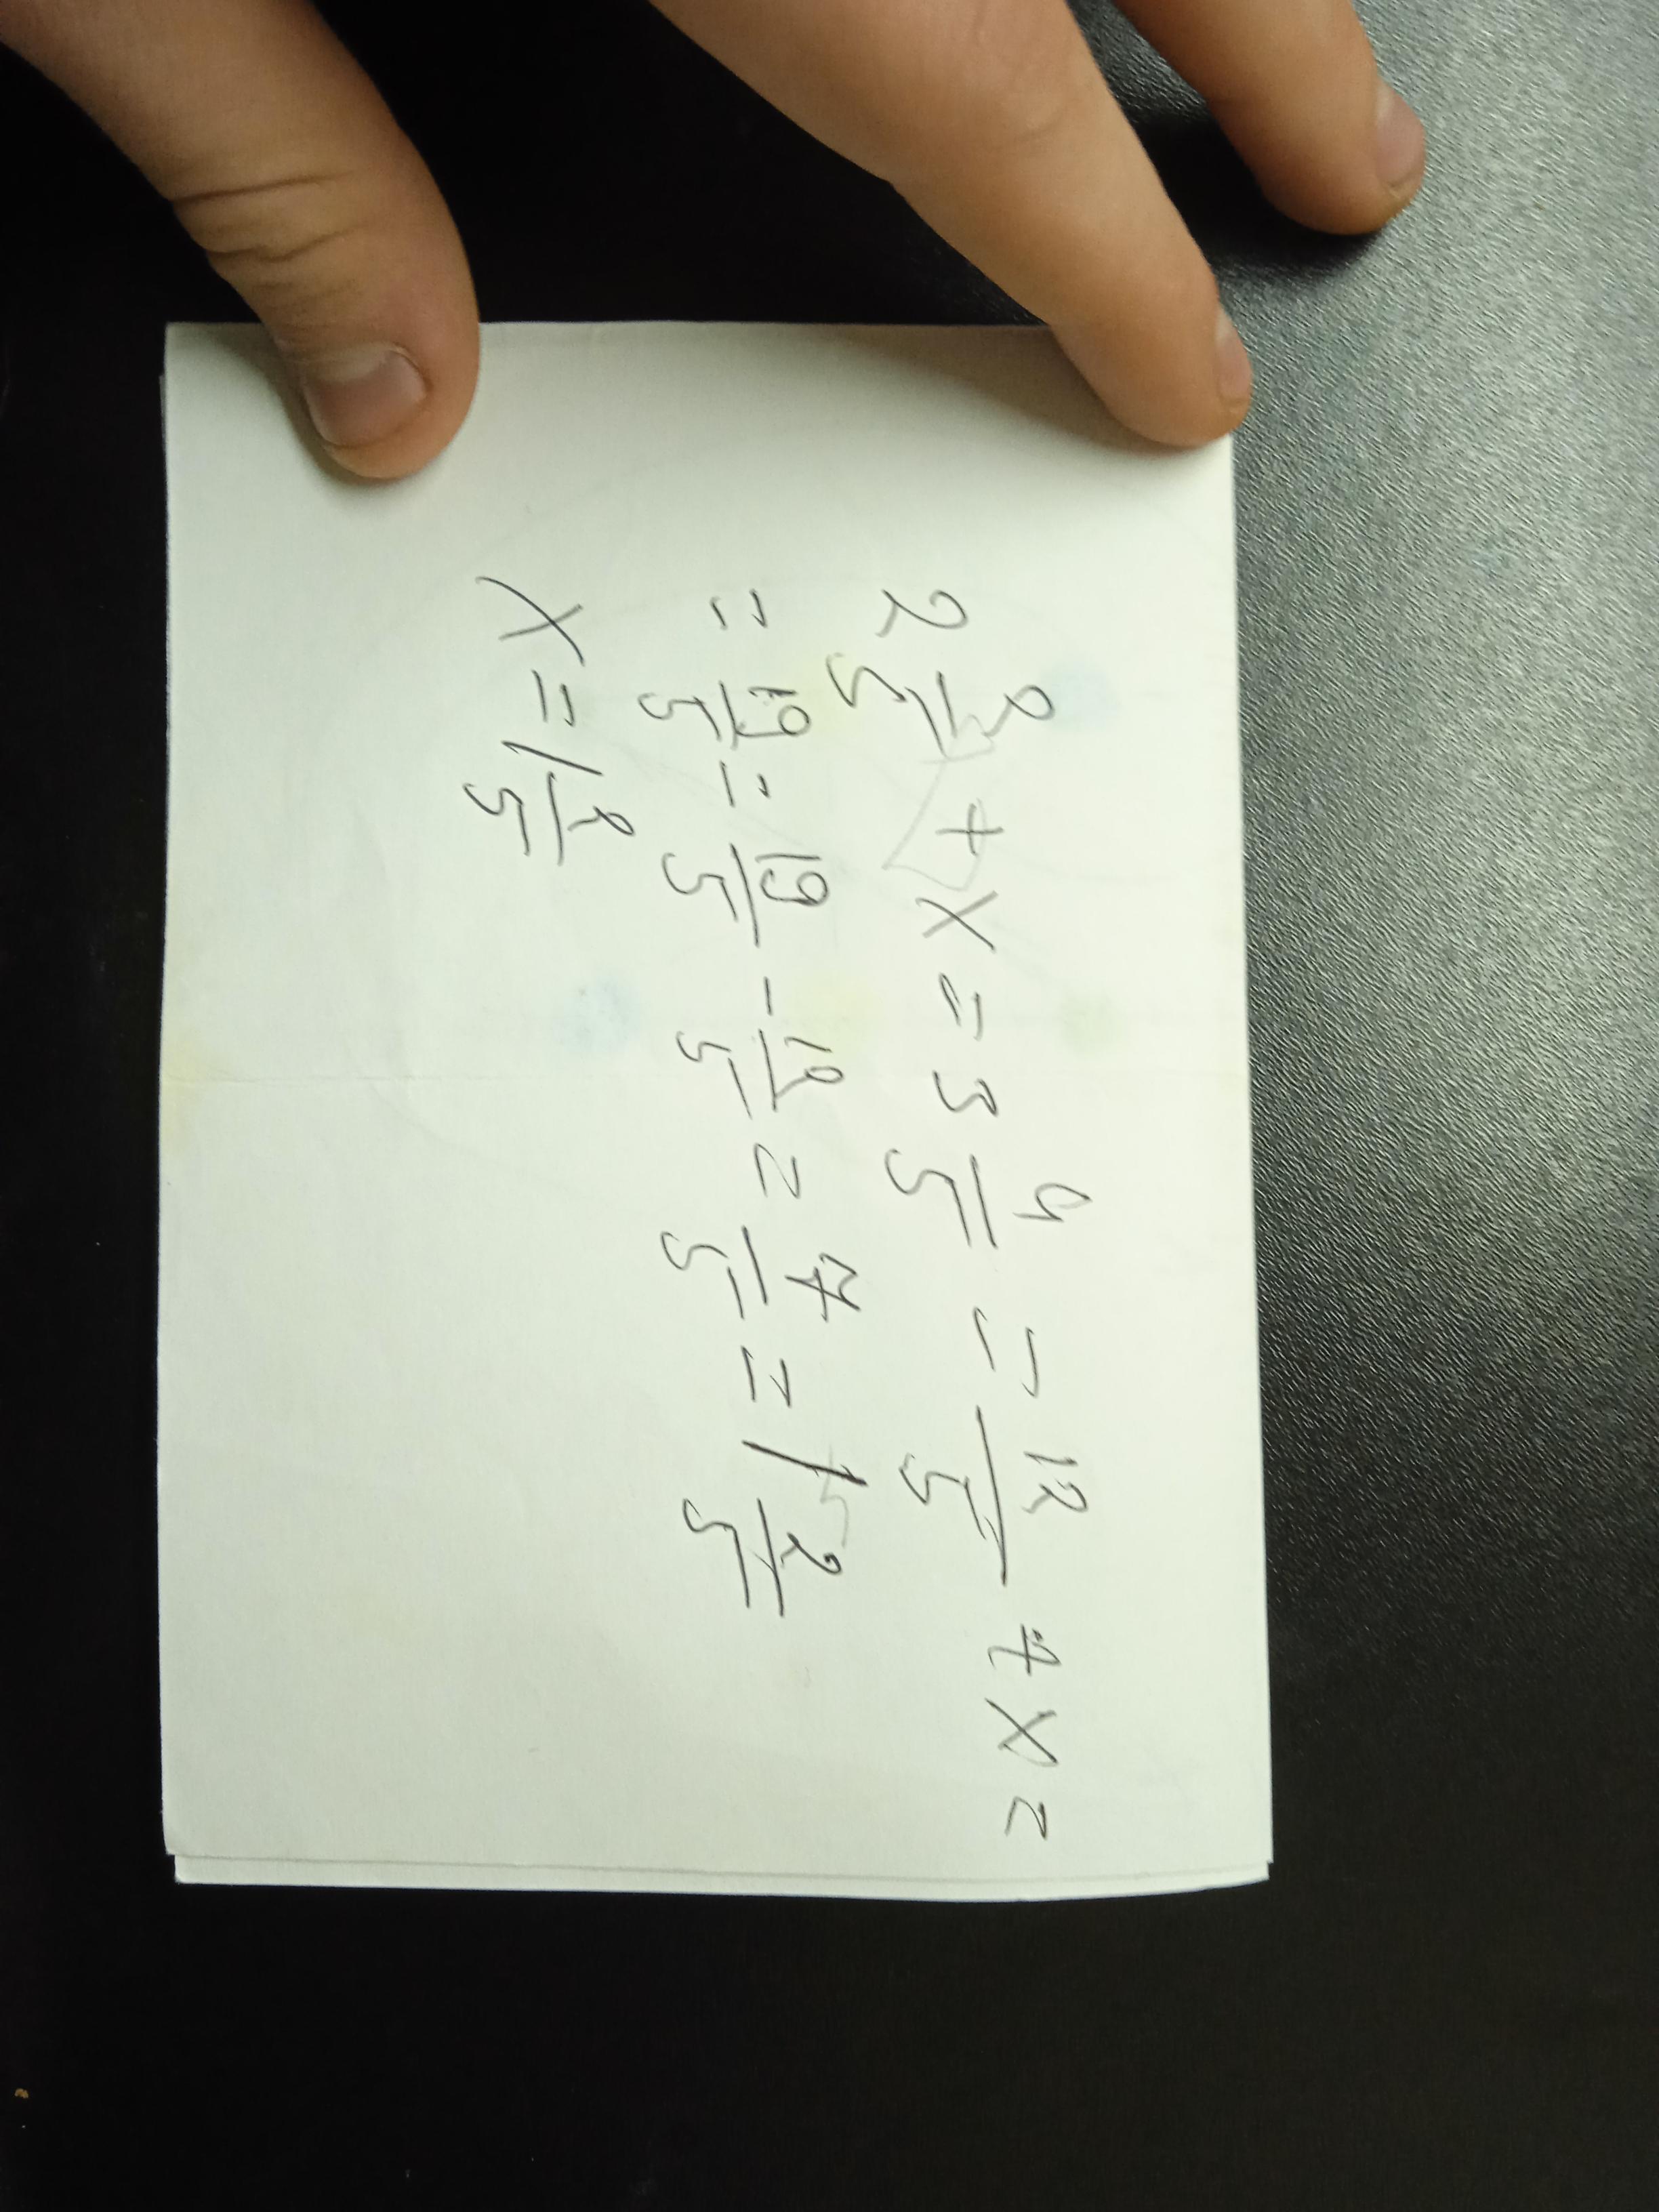 2 2/5 + x = 3 4/5 = 12/5 + x =
= 19/5 = 19/5 - 12/5 = 7/5 = 1 2/5
x = 1 2/5